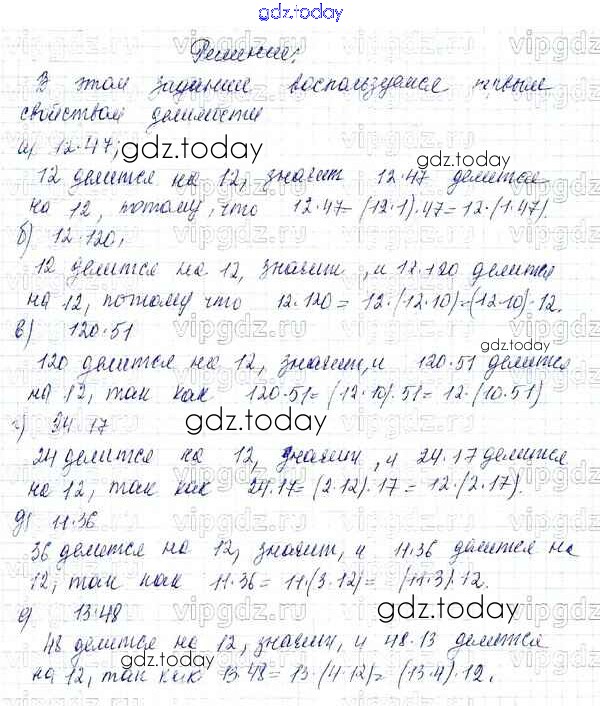 gdz.today
Решение:
В этом задании воспользуемся первым
свойством делимости
а) 12·47;
gdz.today
12 делится на 12, значит 12·47 делится
gdz.today
на 12, потому, что 12·47=(12·1)·47=12·(1·47).
б) 12·120;
12 делится на 12, значит, и 12·120 делится
на 12, потому что 12·120 = 12·(12·10)=(12·10)·12.
в) 120·51
gdz.today
120 делится на 12, значит, и 120·51 делится
на 12, так как 120·51=(12·10)·51=12·(10·51)
г) 34·17
gdz.today
24 делится на 12, значит, и 24·17 делится
на 12, так как 24·17=(2·12)·17=12·(2·17).
gdz.today
д) 11·36
36 делится на 12, значит, и 11·36 делится на
12, так как 11·36=11·(3·12)= (11·3)·12.
е) 13·48
gdz.today
48 делится на 12, значит, и 48·13 делится
gdz.today
на 12, так как 13·48=13·(4·12)=(13·4)·12.